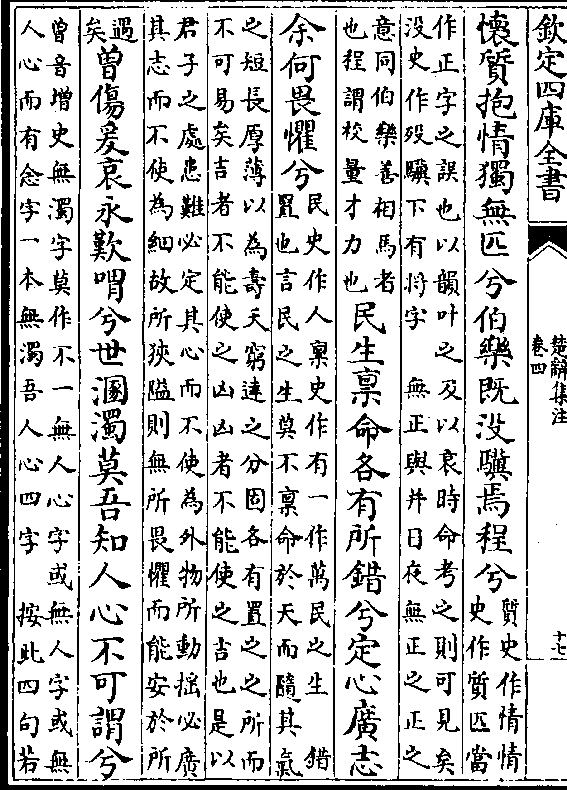 欽定四庫全書
楚辭集注
卷四
十七
懷質抱情獨無匹兮伯樂既没驥焉程兮
質史作情情
史作質匹當
作正字之誤也以韻叶之及以哀時命考之則可見矣
没史作歿驥下有将字 無正與并日夜無正之正之
意同伯樂善相馬者
也程謂校量才力也
民生禀命各有所錯兮定心廣志
余何畏懼兮
民史作人禀史作有一作萬民之生 錯
置也言民之生莫不禀命於天而隨其氣
之短長厚薄以為壽夭窮達之分固各有置之之所而
不可易矣吉者不能使之凶凶者不能使之吉也是以
君子之處患難必定其心而不使為外物所動揺必廣
其志而不使為細故所狹隘則無所畏懼而能安於所
遇
矣
曾傷爰哀永歎喟兮世溷濁莫吾知人心不可謂兮
曾音增史無濁字莫作不一無人心字或無人字或無
人心而有念字一本無濁吾人心四字 按此四句若